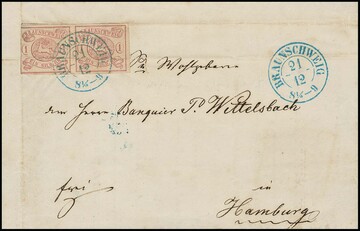 BRAUNSCHWEIG
21
12
8¼-9
BRAUNSCHWEIG
21
12
8¼-9
1
1
1
Wohlgeboren
dem Herrn Banquier P. Wittelsbach
frei
in
Hamburg